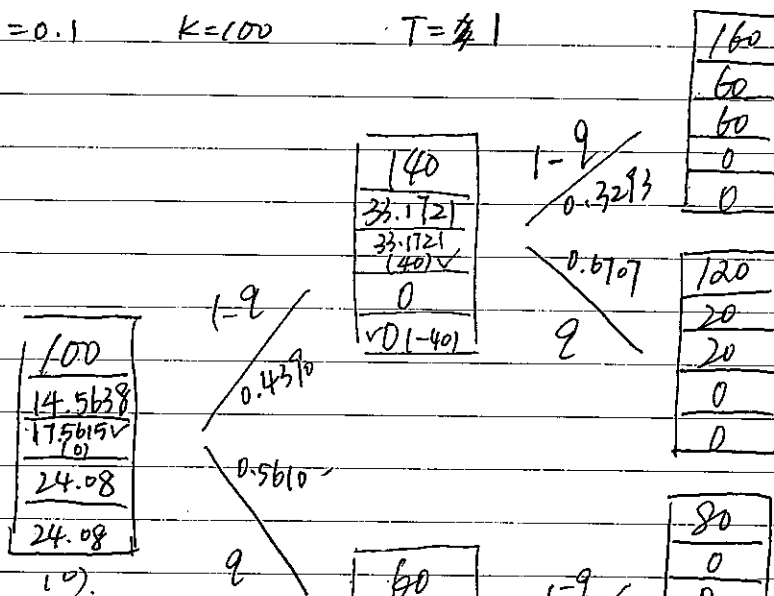 =0.1 K=100 T= 1
160
60
60
0
0
140
33.1721
33.1721
(40)✓
0
✓0(-40)
1-q
0.3293
0.6707
q
120
20
20
0
0
100
14.5638
17.5615✓
(0)
24.08
24.08
(0).
1-q
0.4390
0.5610
q
60
1-q
80
0